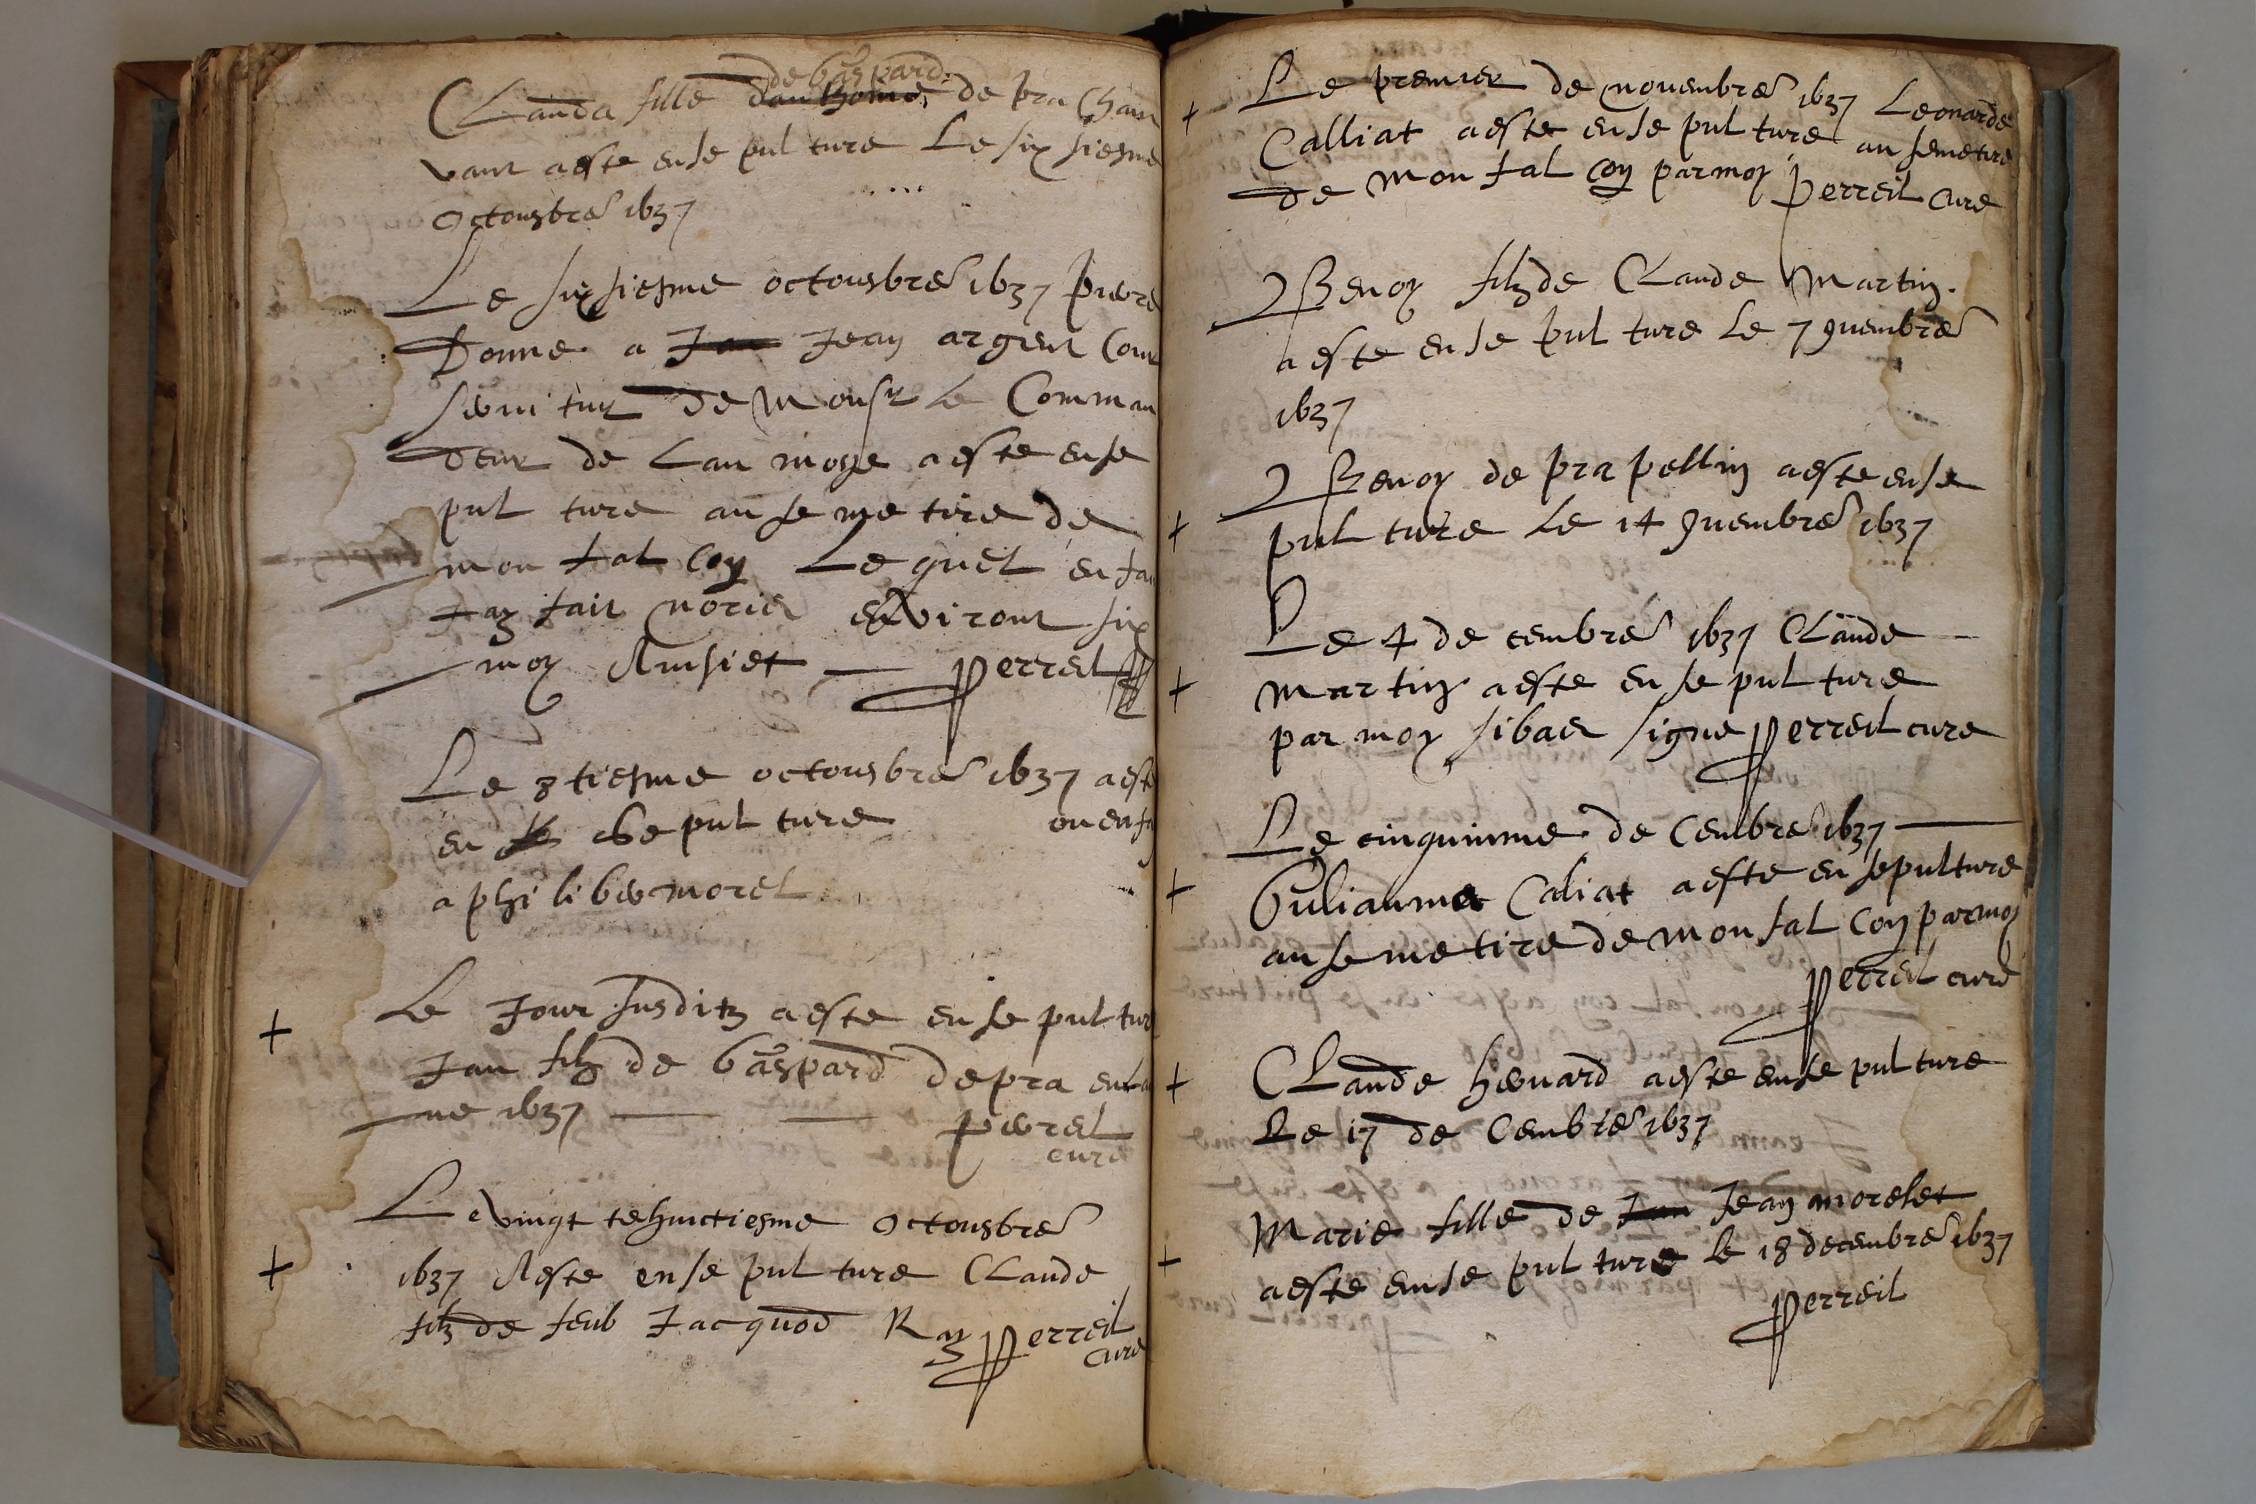 de Gaspard
CLauda fille d'anthoine de pra Chau
vant a este ensepulture Le sixsiesme
Octousbre 1637
Le sixsiesme octousbre 1637 pierre
Donne a Jan Jean argent Cour
servitur de Monsr Le Comman
deur de Lau mosne a este ense
pul ture au se me tire de
mon fal coy Lequel enfan
Jay fait norir environt six
moy Ainsiet perreil
Le 8tiesme octousbre 1637 a este
en se pul ture
a philiber morel
Le Jour susditz a este en se pul tur
Jan filz de Gaspard de pra
ne 1637
perrel
cure
Le vingt te huictiesme Octousbre
1637 A este en se pul ture CLaude
filz de feub Jacquod Ray perreil
cure
Le premier de novembre 1637 Leonarde
Calliat a este en se pul ture au semetire
de Mon fal coy par moy
perreil Cure
Benoy filz de CLaude Martin
a este en se pul ture Le 7 9vembre
1637
Benoy de pra pellin a este en se
pul ture Le 14 9vembre 1637
Le 4 de cembre 1637 CLaude
Martin a este en se pul ture
par moy sibaer signe perreil cure
Le cinquiume de Cembre 1637
Guliaume Caliat a este en sepulture
au se me tire de mon fal Coy par moy
perreil cure
CLaude hevrard a este en se pul ture
Le 17 de Cembre 1637
Marie fille de Jan Jean morelet
a este en se pul ture le 18 decembre 1637
perreil